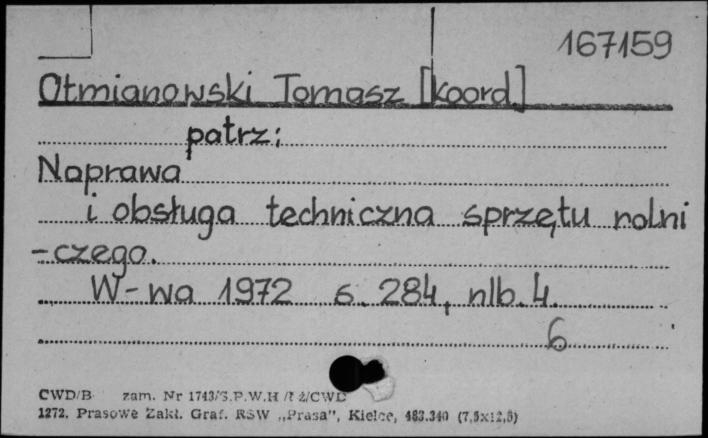 167159
Otmianowski Tomasz [koord.]
patrz:
Naprawa
i obsługa techniczna sprzętu rolni
-czego.
W-wa 1972 s. 284, nlb. 4.
6
CWD/B zam. Nr 1743/S.P.W.H
1272. Prasowe Zakł. Graf. RSW „Prasa", Kielce, 483.340 (7,5x12,5)